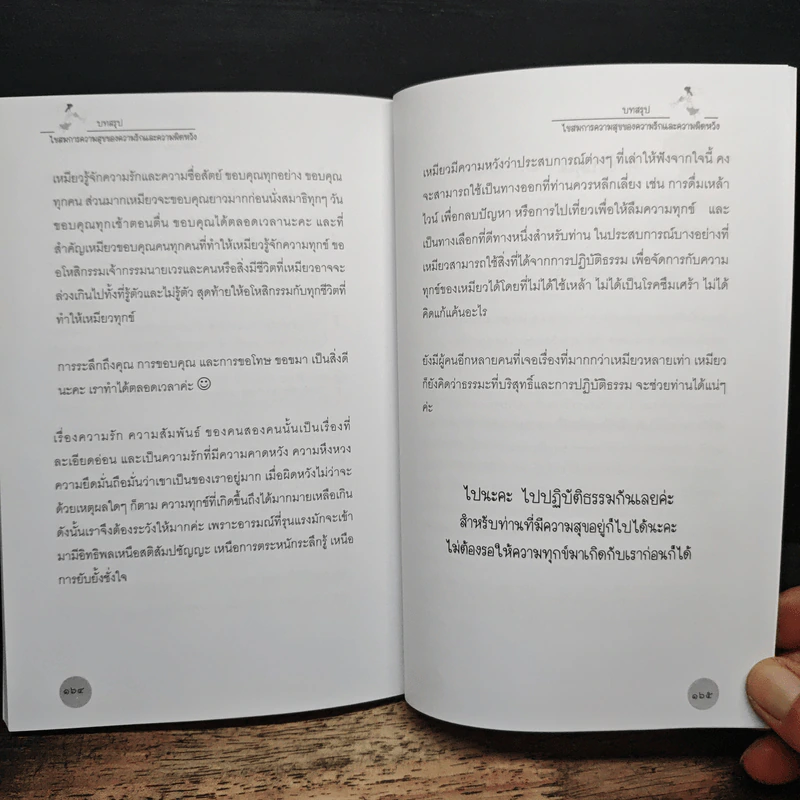 บทสรุป
ไขสมการความสุขของความรักและความผิดหวัง
เหมียวรู้จักความรักและความซื่อสัตย์ ขอบคุณทุกอย่าง ขอบคุณ
ทุกคน ส่วนมากเหมียวจะขอบคุณยาวมากก่อนนั่งสมาธิทุกๆ วัน
ขอบคุณทุกเช้าตอนตื่น ขอบคุณได้ตลอดเวลานะคะ และที่
สำคัญเหมียวขอบคุณคนทุกคนที่ทำให้เหมียวรู้จักความทุกข์ ขอ
อโหสิกรรมเจ้ากรรมนายเวรและคนหรือสิ่งมีชีวิตที่เหมียวอาจจะ
ล่วงเกินไปทั้งที่รู้ตัวและไม่รู้ตัว สุดท้ายให้อโหสิกรรมกับทุกชีวิตที่
ทำให้เหมียวทุกข์
การระลึกถึงคุณ การขอบคุณ และการขอโทษ ขอขมา เป็นสิ่งดี
นะคะ เราทำได้ตลอดเวลาค่ะ ☺
เรื่องความรัก ความสัมพันธ์ ของคนสองคนนั้นเป็นเรื่องที่
ละเอียดอ่อน และเป็นความรักที่มีความคาดหวัง ความหึงหวง
ความยึดมั่นถือมั่นว่าเขาเป็นของเราอยู่มาก เมื่อผิดหวังไม่ว่าจะ
ด้วยเหตุผลใดๆ ก็ตาม ความทุกข์ที่เกิดขึ้นถึงได้มากมายเหลือเกิน
ดังนั้นเราจึงต้องระวังให้มากค่ะ เพราะอารมณ์ที่รุนแรงมักจะเข้า
มามีอิทธิพลเหนือสติสัมปชัญญะ เหนือการตระหนักระลึกรู้ เหนือ
การยับยั้งชั่งใจ
๑๖๔
บทสรุป
ไขสมการความสุขของความรักและความผิดหวัง
เหมียวมีความหวังว่าประสบการณ์ต่างๆ ที่เล่าให้ฟังจากใจนี้ คง
จะสามารถใช้เป็นทางออกที่ท่านควรหลีกเลี่ยง เช่น การดื่มเหล้า
ไวน์ เพื่อกลบปัญหา หรือการไปเที่ยวเพื่อให้ลืมความทุกข์ และ
เป็นทางเลือกที่ดีทางหนึ่งสำหรับท่าน ในประสบการณ์บางอย่างที่
เหมียวสามารถใช้สิ่งที่ได้จากการปฏิบัติธรรม เพื่อจัดการกับความ
ทุกข์ของเหมียวได้โดยที่ไม่ได้ใช้เหล้า ไม่ได้เป็นโรคซึมเศร้า ไม่ได้
คิดแก้แค้นอะไร
ยังมีผู้คนอีกหลายคนที่เจอเรื่องที่มากกว่าเหมียวหลายเท่า เหมียว
ก็ยังคิดว่าธรรมะที่บริสุทธิ์และการปฏิบัติธรรม จะช่วยท่านได้แน่ๆ
ค่ะ
ไปนะคะ ไปปฏิบัติธรรมกันเลยค่ะ
สำหรับท่านที่มีความสุขอยู่ก็ไปได้นะคะ
ไม่ต้องรอให้ความทุกข์มาเกิดกับเราก่อนก็ได้
๑๖๕